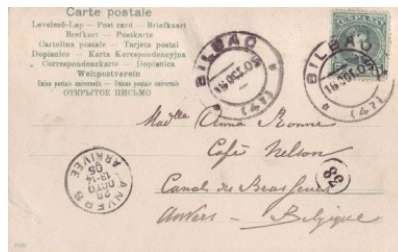 Carte postale
Levelező-Lap — Post card — Briefkaart
Brefkort — Postkarte
Cartolina postale — Tarjeta postal
Dopisnice — Karta Korespondencyjna
Correspondenzkarte — Dopisnica
Weltpostverein
Union postale universelle — Unione postale universale
ОТКРЫТОЕ ПИСЬМО
BILBAO
16 OCT 05
(47)
ESPAÑA
BILBAO
16 OCT 05
(47)
Madlle Anna Bonne
Café Nelson
38
Canal des Brasseurs
Anvers — Belgique
ANVERS
20
OCTO
13-14
05
ARRIVÉE